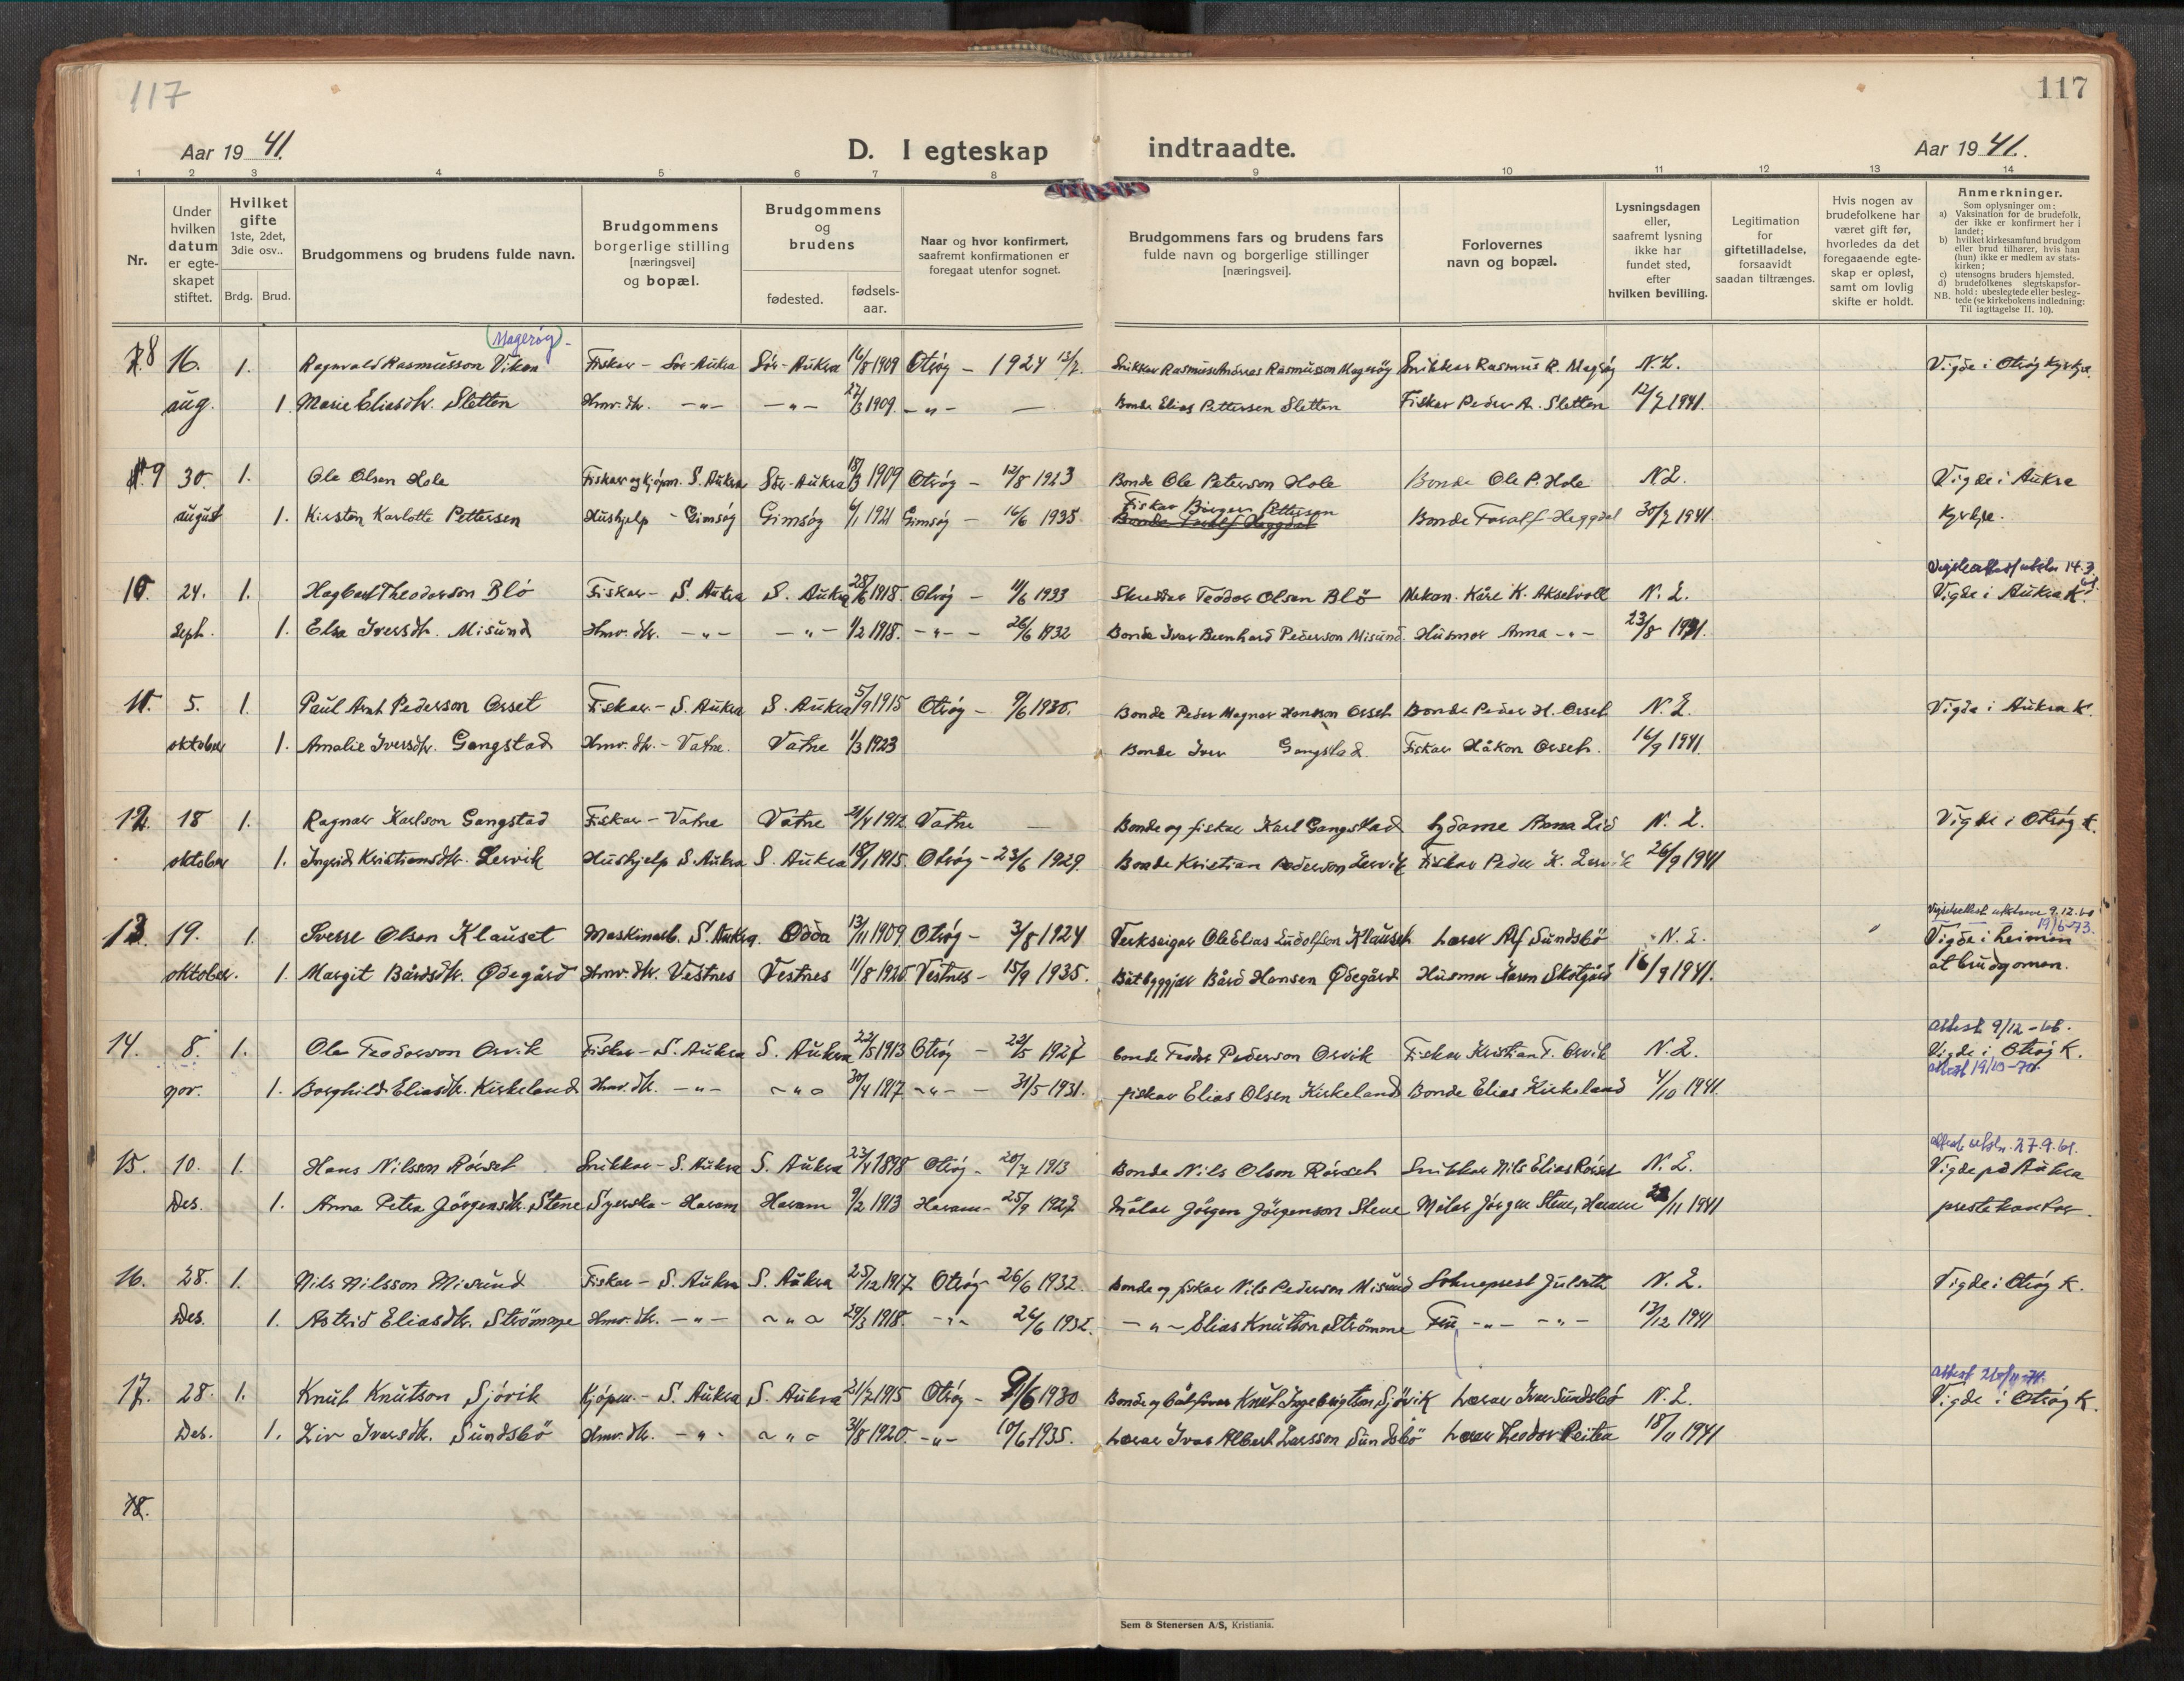 117
117
Aar 19 41.
D. I egteskap indtraadte.
Aar 19 41.
1 2 3 4 5 6 7 8 9 10 11 12 13 14
Nr.
Under hvilken datum er egteskapet stiftet.
Hvilket gifte 1ste, 2det, 3die osv..
Brdg. Brud.
Brudgommens og brudens fulde navn.
Brudgommens borgerlige stilling [næringsvei] og bopæl.
Brudgommens og brudens
fødested.
fødsels-aar.
Naar og hvor konfirmert, saafremt konfirmationen er foregaat utenfor sognet.
Brudgommens fars og brudens fars fulde navn og borgerlige stillinger [næringsvei].
Forlovernes navn og bopæl.
Lysningsdagen eller, saafremt lysning ikke har fundet sted, efter hvilken bevilling.
Legitimation for giftetilladelse, forsaavidt saadan tiltrænges.
Hvis nogen av brudefolkene har været gift før, hvorledes da det foregaaende egteskap er opløst, samt om lovlig skifte er holdt.
Anmerkninger.
Som oplysninger om:
a) Vaksination for de brudefolk, der ikke er konfirmert her i landet;
b) hvilket kirkesamfund brudgom eller brud tilhører, hvis han (hun) ikke er medlem av statskirken;
c) utensogns bruders hjemsted.
d) brudefolkenes slegtskapsforhold: ubeslegtede eller beslegtede (se kirkebokens indledning:
NB. Til iagttagelse II. 10).
(Magerøy)
8 16. 1. Ragnvald Rasmusson Vikan Fiskar - Sør-Aukra Sør-Aukra 16/8 1909 Otrøy - 1924 Snikkar Rasmus Andreas Rasmusson Magerøy Snikkar Rasmus R. Magrøy N.L. Vigde i Otrøy kyrkje.
aug. 1. Marie Eliasdtr. Sletten Hmv. dtr. -"- -"- 27/3 1909 -"- — Bonde Elias Pettersen Sletten Fiskar Peder A. Sletten 12/7 1941.
9 30. 1. Ole Olsen Hole Fiskar og kjøpm. S. Aukra Sør-Aukra 18/3 1909 Otrøy - 12/8 1923 Bonde Ole Peterson Hole Bonde Ole P. Hole N.L. Vigde i Aukra
august 1. Kirsten Karlotte Pettersen Hushjelp - Gimsøy Gimsøy 6/1 1921 Gimsøy - 16/6 1935 Fiskar Birger Petterson Bonde Toralf Heggdal 30/7 1941. kyrkje.
Bonde Toralf Heggdal
10. 24. 1. Hagbart Theodorson Blø Fiskar - S. Aukra S. Aukra 28/6 1918. Otrøy - 11/6 1933 Skreddar Teodor Olsen Blø Mekan. Kåre K. Akselvoll N.L. Vigde i Aukra K.
sept. 1. Elsa Iversdtr. Misund Hmv. dtr. -"- -"- 1/2 1918. -"- - 26/6 1932 Bonde Ivar Bernhard Pederson Misund Husmor Anna -"- 23/8 1941.
11. 5. 1. Paul Arnt Pederson Orset Fiskar - S. Aukra S. Aukra 5/9 1915 Otrøy - 9/6 1930. Bonde Peder Magnar Hansson Orset Bonde Peder H. Orset N.L. Vigde i Aukra K.
oktober 1. Amalie Iversdtr. Gangstad Hmv. dtr. - Vatne. Vatne 1/3 1923 Bonde Iver Gangstad Fiskar Håkon Orset. 16/9 1941.
12. 18 1. Ragnar Karlson Gangstad Fiskar - Vatne Vatne 21/4 1912 Vatne — Bonde og fiskar Karl Gangstad Sydame Anna Lid N.L. Vigde i Otrøy K.
oktober 1. Ingrid Kristiansdtr. Lervik Hushjelp S. Aukra S. Aukra 18/1 1915. Otrøy - 23/6 1929. Bonde Kristian Pederson Lervik Fiskar Peder K. Lervik 26/9 1941
13. 19. 1. Sverre Olson Klauset Maskinarb. S. Aukra. Odda 13/11 1909 Otrøy - 3/8 1924 Verkseigar Ole Elias Ludolfson Klauset Lærar Alf Sundsbø N.L. Vigde i heimen
19/6-73.
oktober. 1. Margit Bårdsdtr. Ødegård Hmv. dtr. Vestnes Vestnes 11/8 1920 Vestnes - 15/9 1935. Båtbyggjar Bård Hansen Ødegård Husmor Karen Skotgård 16/9 1941. åt brudgomen.
attest 9/12 -66.
14. 8. 1. Ola Teodorson Orvik Fiskar - S. Aukra S. Aukra 22/5 1913 Otrøy - 22/5 1927 bonde Teodor Pederson Orvik Fiskar Kristian T. Orvik N.L. Vigde i Otrøy K.
nov. 1. Borghild Eliasdtr. Kirkeland Hmv. dtr. -"- -"- 30/4 1917 -"- - 31/5 1931. fiskar Elias Olsen Kirkeland Bonde Elias Kirkeland 4/10 1941. attest 19/10-70.
15. 10. 1. Hans Nilsson Rørset Snikkar - S. Aukra S. Aukra 23/4 1898 Otrøy - 20/7 1913 Bonde Nils Olson Rørset Snikkar Nils Elias Rørset N.L. Vigde på Aukra
Des. 1. Anna Petra Jörgensdtr. Stene Syerska - Haram Haram 9/2 1913 Haram - 25/9 1927 Målar Jörgen Jörgenson Stene Målar Jörgen Stene, Haram /11 1941 prestekontor.
16. 28. 1. Nils Nilsson Misund Fiskar - S. Aukra S. Aukra 25/12 1917 Otrøy - 26/6 1932. Bonde og fiskar Nils Pederson Misund Sokneprest Julseth N.L. Vigde i Otrøy K.
Des. 1. Astrid Eliasdtr. Strömme Hmv. dtr. -"- -"- 29/3 1918. -"- 26/6 1932. -"- Elias Knutson Strömme Fru -"- -"- 13/12 1941
attest
17. 28. 1. Knut Knutson Sjøvik Kjøpm. - S. Aukra S. Aukra 21/7 1915 Otrøy - 9/6 1930 Bonde og båtförar Knut Ingebrigtson Sjøvik Lærar Ivar Sundsbö N.L. Vigde i Otrøy K.
Des. 1. Liv Ivarsdtr. Sundsbö Hmv. dtr. -"- -"- 31/8 1920. -"- 10/6 1935. Lærar Ivar Albert Larsson Sundsbö Lærar Teodor Reiten 18/11 1941
18.
Sem & Stenersen A/S, Kristiania.